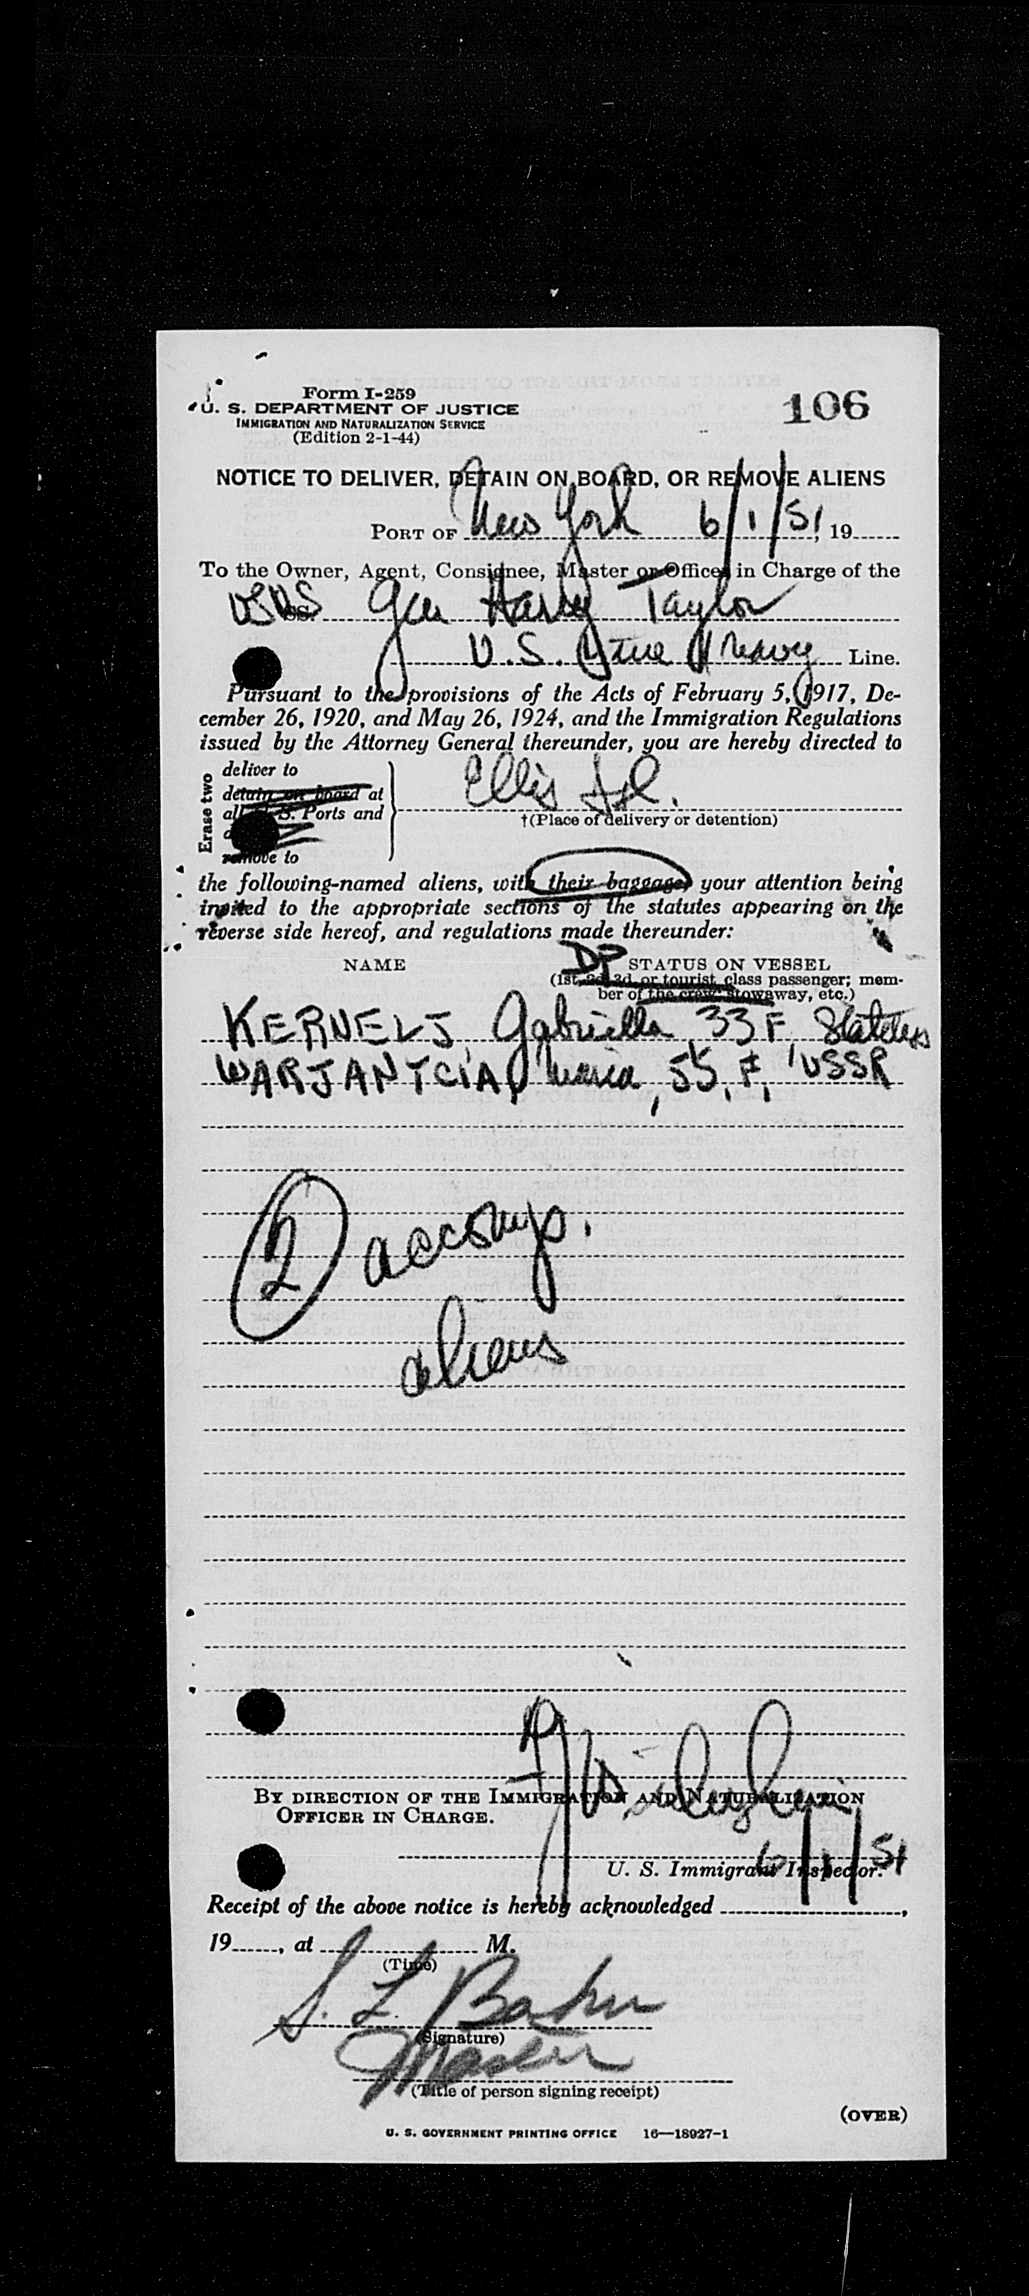 Form I-259
U. S. DEPARTMENT OF JUSTICE
IMMIGRATION AND NATURALIZATION SERVICE
(Edition 2-1-44)
106
NOTICE TO DELIVER, DETAIN ON BOARD, OR REMOVE ALIENS
PORT OF New York 6/1/51, 19
To the Owner, Agent, Consignee, Master or Officer in Charge of the
USNS Gen Harry Taylor
U.S. Navy Line.
Pursuant to the provisions of the Acts of February 5, 1917, De-
cember 26, 1920, and May 26, 1924, and the Immigration Regulations
issued by the Attorney General thereunder, you are hereby directed to
Erase two
deliver to
detain on board at
all U. S. Ports and
remove to
Ellis Isl.
†(Place of delivery or detention)
the following-named aliens, with their baggage, your attention being
invited to the appropriate sections of the statutes appearing on the
reverse side hereof, and regulations made thereunder:
NAME
DP STATUS ON VESSEL
(1st, 2d, 3d, or tourist class passenger; mem-
ber of the crew, stowaway, etc.)
KERNELJ, Gabriella 33 F, Stateless
WARJANYCIA, Maria, 55, F, USSR
2 accomp.
aliens
BY DIRECTION OF THE IMMIGRATION AND NATURALIZATION
OFFICER IN CHARGE.
6/1/51
U. S. Immigrant Inspector.
Receipt of the above notice is hereby acknowledged ,
19 , at M.
(Time)
S. L.
(Signature)
Master
(Title of person signing receipt)
(OVER)
U. S. GOVERNMENT PRINTING OFFICE 16—18927-1